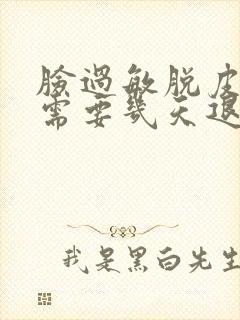 臉過敏脱皮
需要幾天退
我是黑白先生